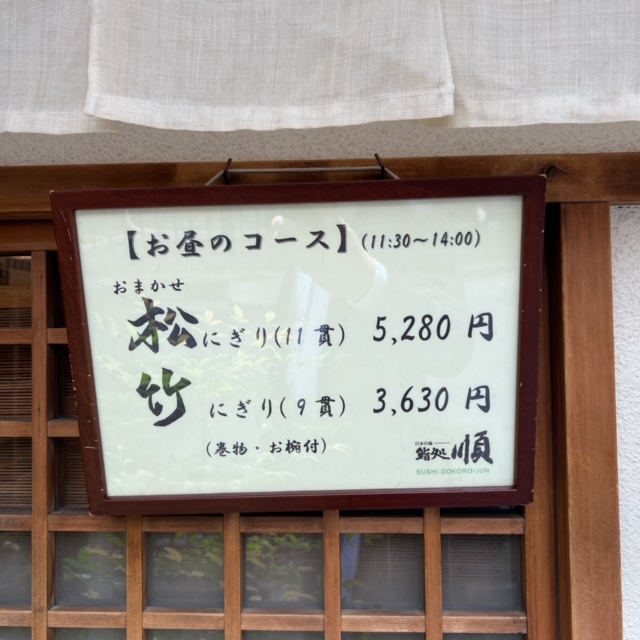 【お昼のコース】(11:30～14:00)
おまかせ
松 にぎり(11貫) 5,280円
竹 にぎり(9貫) 3,630円
(巻物・お椀付)
日本の鮨
鮨処 順
SUSHI DOKORO-JUN